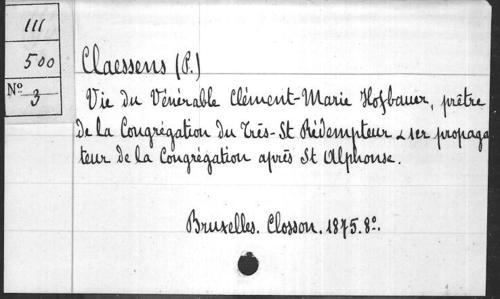 III
500
N° 3
Claessens (P.)
Vie du Vénérable Clément-Marie Hofbauer, prêtre
de la Congrégation du Très-St Rédempteur & 1er propaga
teur de la Congrégation après St Alphonse.
Bruxelles. Closson. 1875. 8°.